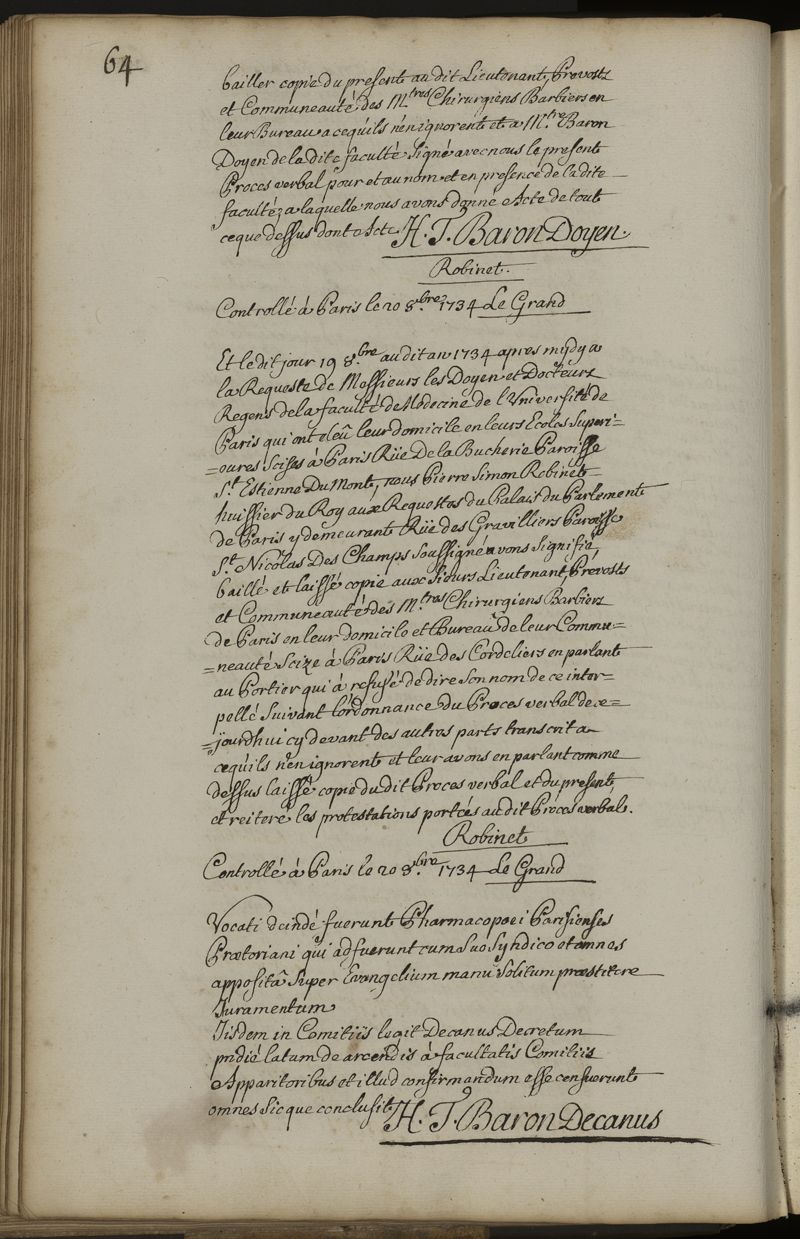 64
bailler copie du present audit Lieutenant, Prevosts
et Communeauté des M.tres Chirurgiens Barbiers en
leur Bureau a cequ'ils n'en ignorent et a M.tre Baron
Doyen de ladite faculté Signé avec nous le present
Proces verbal pour et au nom et en presence de ladite
faculté, a laquelle nous avons donné Acte de tout
ceque dessus dont Acte H. T. Baron Doyen.
Robinet.
Controllé à Paris le 20 8.bre 1734 Le Grand
Et ledit jour 19 8.bre audit an 1734 apres mydy a
la Requeste de Messieurs les Doyen et Docteurs
Regens de la faculté de Medecine de l'Université de
Paris qui ont eleû leur domicile en leurs Ecoles Superi=
=oures Scises à Paris Rüe De la Bucherie Paroisse
S.t Estienne Du Mont, nous Pierre Simon Robinet
huissier du Roy aux Requestes du Palais du Parlement
de Paris y demeurant Rüe des Gravilliers Paroisse
S.t Nicolas Des Champs Soussigné avons Signifié,
baillé et laissé copie aux Sieurs Lieutenant, Prevosts
et Communeauté des M.tres Chirurgiens Barbiers
de Paris en leur domicile et Bureau de leur Commu=
=neauté Scize à Paris Rüe des Cordeliers en parlant
au Portier qui à refusé de dire Son nom de ce inter=
pellé Suivant l'ordonnance du Proces verbal de ce=
=jourdhui cy devant des autres parts transcrit a
cequ'ils n'en ignorent et leur avons en parlant comme
dessus laissé copie dudit Proces verbal et du present,
et reiteré les protestations portées audit Proces verbal.
Robinet
Controllé à Paris le 20 8.bre 1734 Le Grand
Vocati deindé fuerunt Pharmacopoei Parisienses
Praetoriani qui adfuerunt cum Suo Syndico et omnes
appositâ Super Evangelium manu Solitum praestitere
Juramentum
Iisdem in Comitiis legit Decanus Decretum
pridié latum de arcendis à facultatis Comitiis
Apparitoribus et illud confirmandum esse censuerunt
omnes Sicque conclusit H. T. Baron Decanus